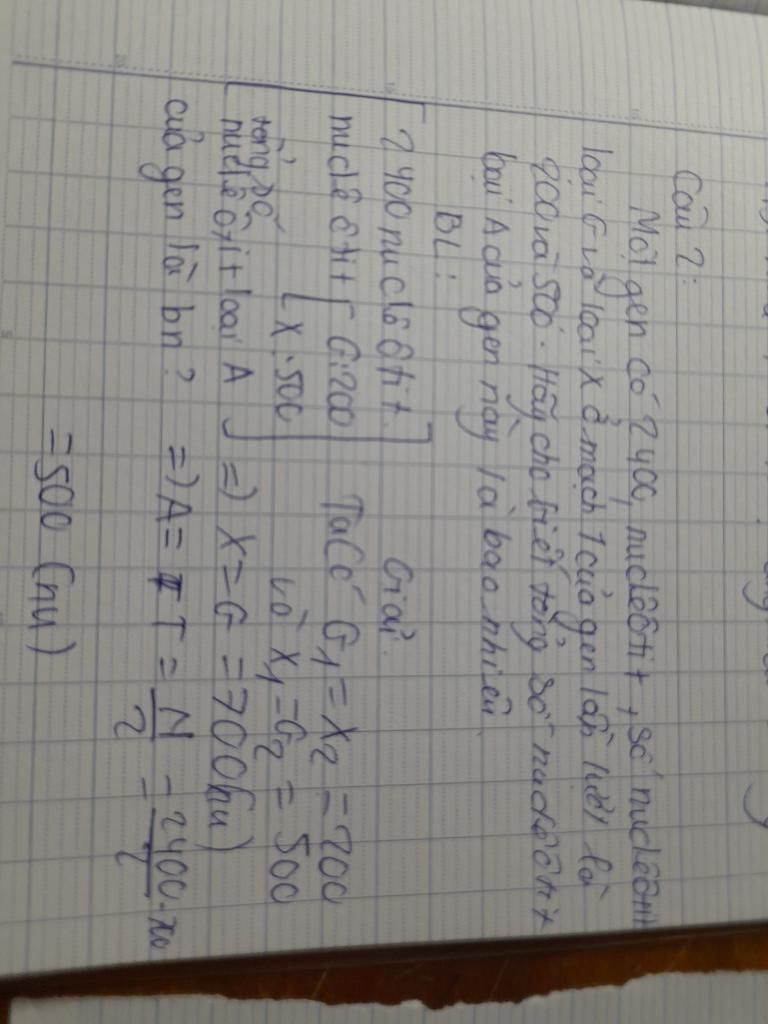 Câu 2:
Một gen có 2400, nuclêôtit, số nuclêôtit
loại G và loại X ở mạch 1 của gen lần lượt là
200 và 500. Hãy cho biết tổng số nuclêôtit
loại A của gen này là bao nhiêu
BL:
2400 nuclêôtit.
nuclêôtit [ G:200
[ X:500
tổng số
nuclêôtit loại A
của gen là bn?
Giải.
Ta có G1 = X2 = 200
và X1 = G2 = 500
=) X = G = 700 (nu)
=) A = T = N/2 = 2400/2 - 700
= 500 (nu)